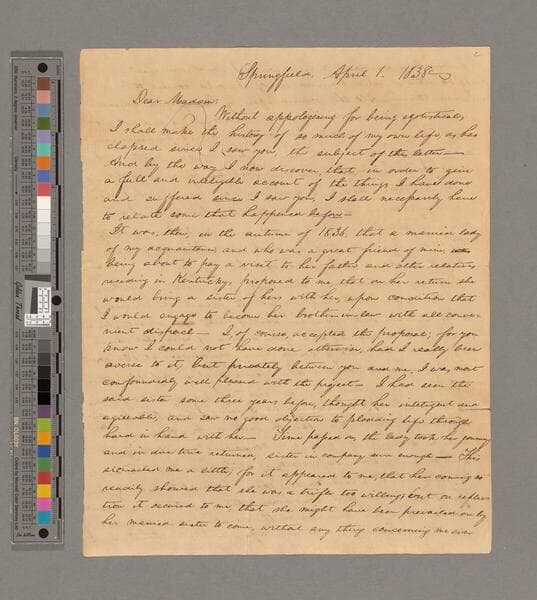 Springfield, April 1. 1838—
Dear Madam:
Without appologising for being egotistical,
I shall make the history of so much of my own life, as has
elapsed since I saw you, the subject of this letter—
And by the way I now discover, that in order to give
a full and inteligible account of the things I have done
and suffered since I saw you, I shall necessarily have
to relate some that happened before—
It was, then, in the autumn of 1836, that a married lady
of my acquaintance, and who was a great friend of mine,
being about to pay a visit to her father and other relatives
residing in Kentucky, proposed to me, that on her return she
would bring a sister of hers with her, upon condition that
I would engage to become her brother-in-law with all conve-
nient dispach— I, of course, accepted the proposal; for you
know I could not have done otherwise, had I really been
averse to it; but privately between you and me, I was most
confoundedly well pleased with the project— I had seen the
said sister some three years before, thought her inteligent and
agreeable, and saw no good objection to plodding life through
hand in hand with her— Time passed on, the lady took her journey
and in due time returned, sister in company sure enough— This
stomached me a little; for it appeared to me, that her coming so
readily showed that she was a trifle too willing; but on reflec-
tion it occured to me, that she might have been prevailed on by
her married sister to come, without any thing concerning me ever